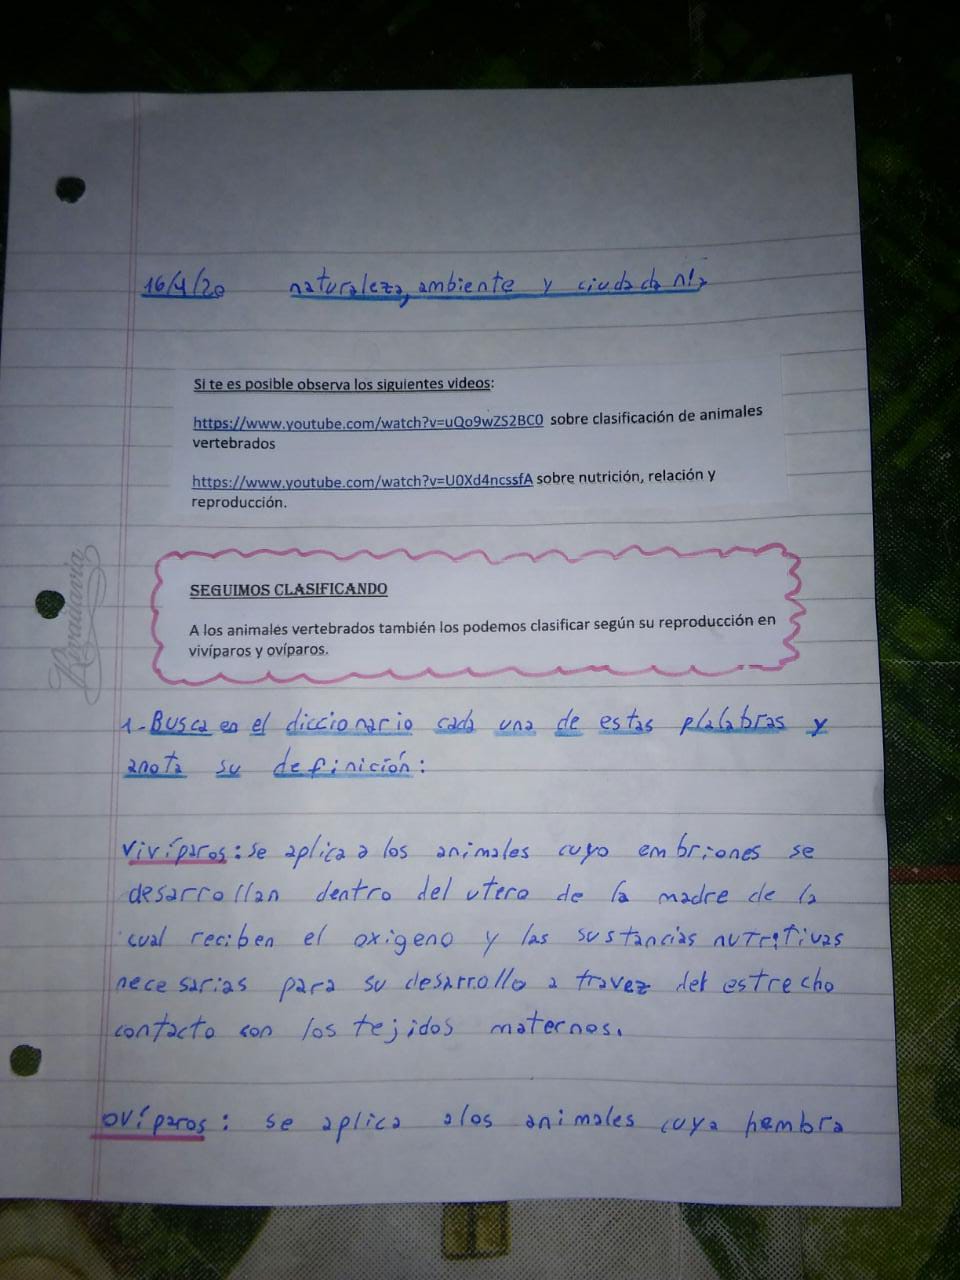 16/4/20 naturaleza, ambiente y ciudadanía
Si te es posible observa los siguientes videos:
https://www.youtube.com/watch?v=uQo9wZS2BC0 sobre clasificación de animales
vertebrados
https://www.youtube.com/watch?v=U0Xd4ncssfA sobre nutrición, relación y
reproducción.
Rivadavia
SEGUIMOS CLASIFICANDO
A los animales vertebrados también los podemos clasificar según su reproducción en
vivíparos y ovíparos.
1-Busca en el diccionario cada una de estas plalabras y
anota su definición:
Vivíparos: se aplica a los animales cuyo embriones se
desarrollan dentro del utero de la madre de la
cual reciben el oxigeno y las sustancias nutritivas
necesarias para su desarrollo a travez del estrecho
contacto con los tejidos maternos.
ovíparos: se aplica a los animales cuya hembra